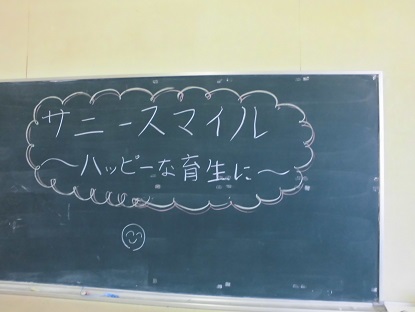 サニースマイル
～ハッピーな育生に～